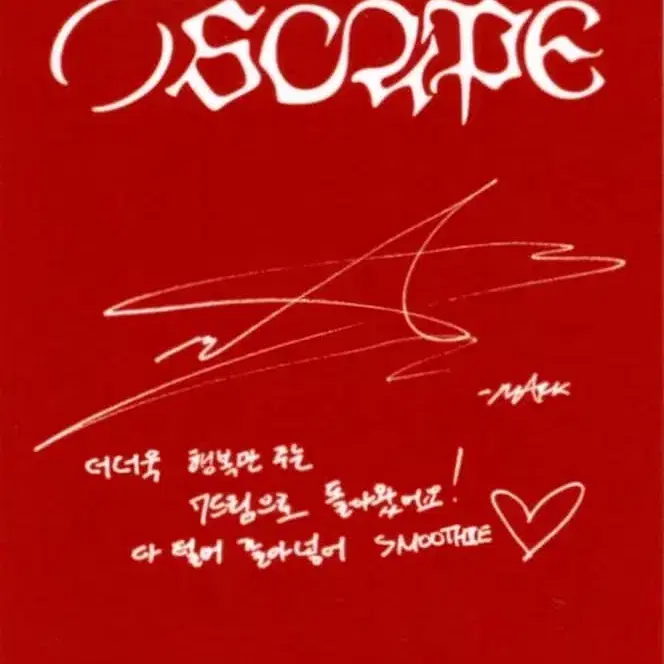 )SCAPE
-MARK
더더욱 행복만 주는
7드림으로 돌아왔어요!
다 털어 쏟아넣어 SMOOTHIE